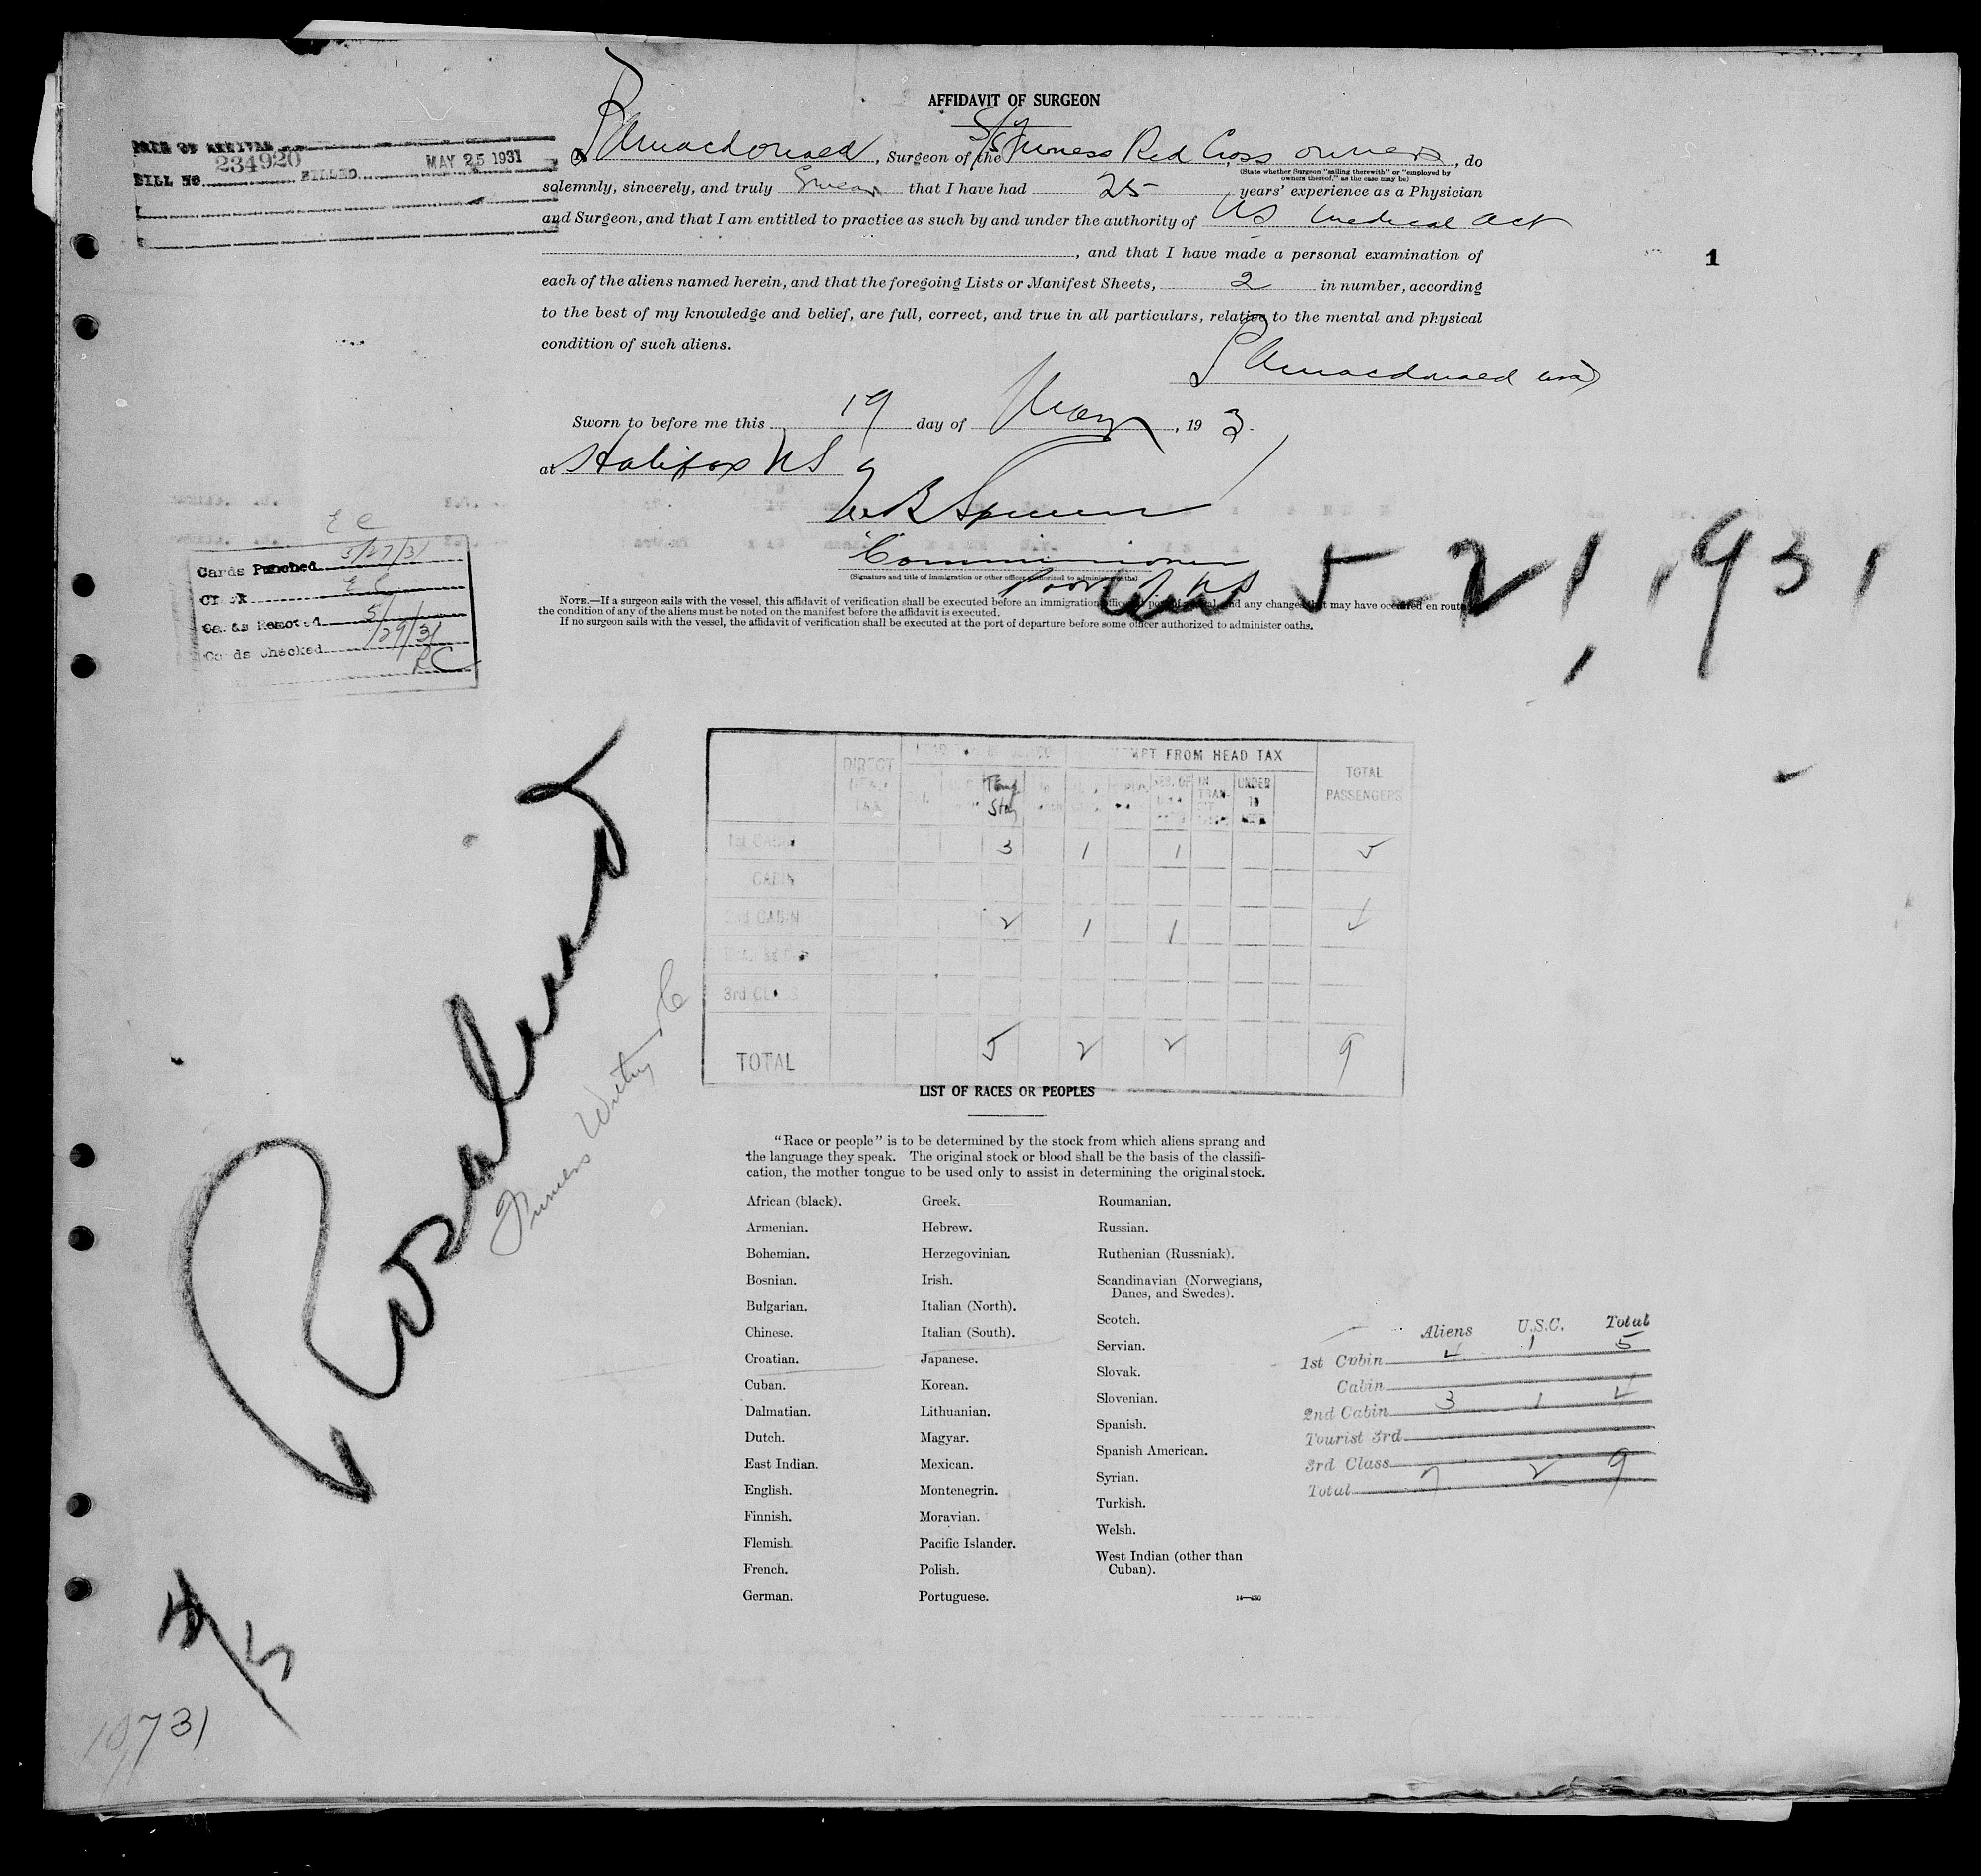 AFFIDAVIT OF SURGEON
DATE OF ARRIVAL
BILL No. 234920 BILLED MAY 25 1931
Macdonald, Surgeon of the S/S Furness Red Cross owners, do
(State whether Surgeon "sailing therewith" or "employed by owners thereof," as the case may be)
solemnly, sincerely, and truly swear that I have had 25 years' experience as a Physician
and Surgeon, and that I am entitled to practice as such by and under the authority of NS Medical Act
, and that I have made a personal examination of
1
each of the aliens named herein, and that the foregoing Lists or Manifest Sheets, 2 in number, according
to the best of my knowledge and belief, are full, correct, and true in all particulars, relative to the mental and physical
condition of such aliens.
Macdonald
Sworn to before me this 19 day of May, 193
at Halifax NS
Commissioner
(Signature and title of immigration or other officer authorized to administer oaths)
NS
5-21, 1931
NOTE.—If a surgeon sails with the vessel, this affidavit of verification shall be executed before an immigration officer at port of arrival, and any changes that may have occurred en route
the condition of any of the aliens must be noted on the manifest before the affidavit is executed.
If no surgeon sails with the vessel, the affidavit of verification shall be executed at the port of departure before some officer authorized to administer oaths.
E C
Cards Punched 5/27/31
E C
Cards Removed 5/
Cards Checked /29/31
RC
Rosalind
Furness Withy & Co
DIRECT HEAD TAX
EXEMPT FROM HEAD TAX
TOTAL PASSENGERS
Temp Stay
IN TRANSIT
UNDER 16
1st CABIN 3 1 1 5
CABIN
2nd CABIN 2 1 1 4
3rd CLASS
TOTAL 5 2 2 9
LIST OF RACES OR PEOPLES
"Race or people" is to be determined by the stock from which aliens sprang and
the language they speak. The original stock or blood shall be the basis of the classifi-
cation, the mother tongue to be used only to assist in determining the original stock.
African (black).
Armenian.
Bohemian.
Bosnian.
Bulgarian.
Chinese.
Croatian.
Cuban.
Dalmatian.
Dutch.
East Indian.
English.
Finnish.
Flemish.
French.
German.
Greek.
Hebrew.
Herzegovinian.
Irish.
Italian (North).
Italian (South).
Japanese.
Korean.
Lithuanian.
Magyar.
Mexican.
Montenegrin.
Moravian.
Pacific Islander.
Polish.
Portuguese.
Roumanian.
Russian.
Ruthenian (Russniak).
Scandinavian (Norwegians,
Danes, and Swedes).
Scotch.
Servian.
Slovak.
Slovenian.
Spanish.
Spanish American.
Syrian.
Turkish.
Welsh.
West Indian (other than
Cuban).
14—430
Aliens U.S.C. Total
1st Cabin 4 1 5
Cabin
2nd Cabin 3 1 4
Tourist 3rd
3rd Class
Total 7 2 9